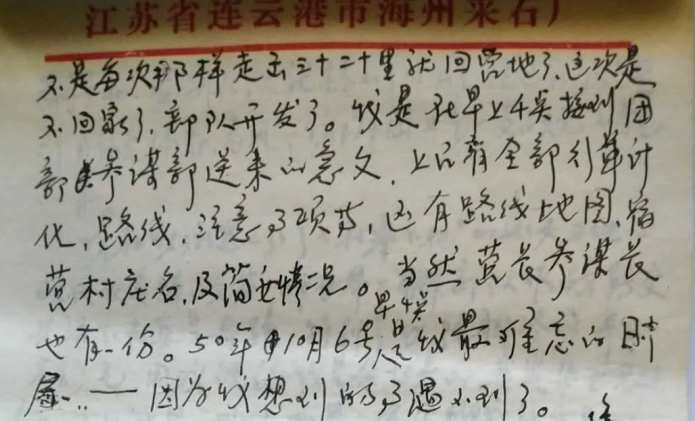 江苏省连云港市海州采石厂
不是每次那样走击三十二十里就回营地了,这次是
不回家了,部队开发了。我是在早上4点接到团
部参谋部送来的急文,上面有全部行军计
化,路线,注意事项等,还有路线地图,宿
营村庄名,及简要情况。当然营长参谋长
早4点
也有一份。50年10月6号是我最难忘的时
因为我想到的事遇不到了。